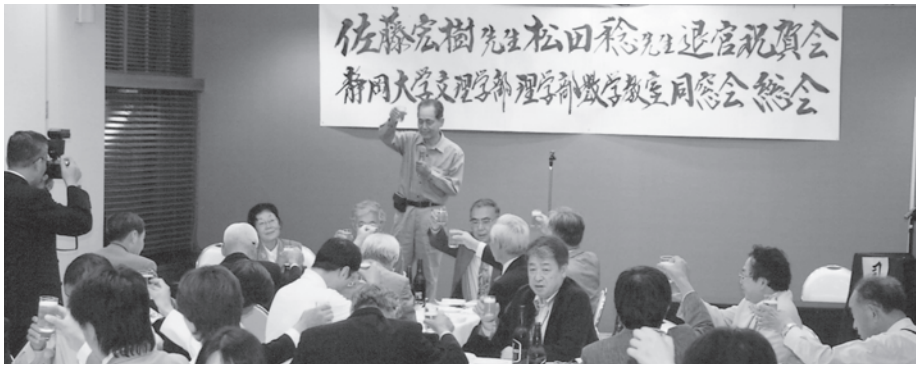 佐藤宏樹先生松田稔先生退官祝賀会
静岡大学文理学部理学部数学教室同窓会総会
司